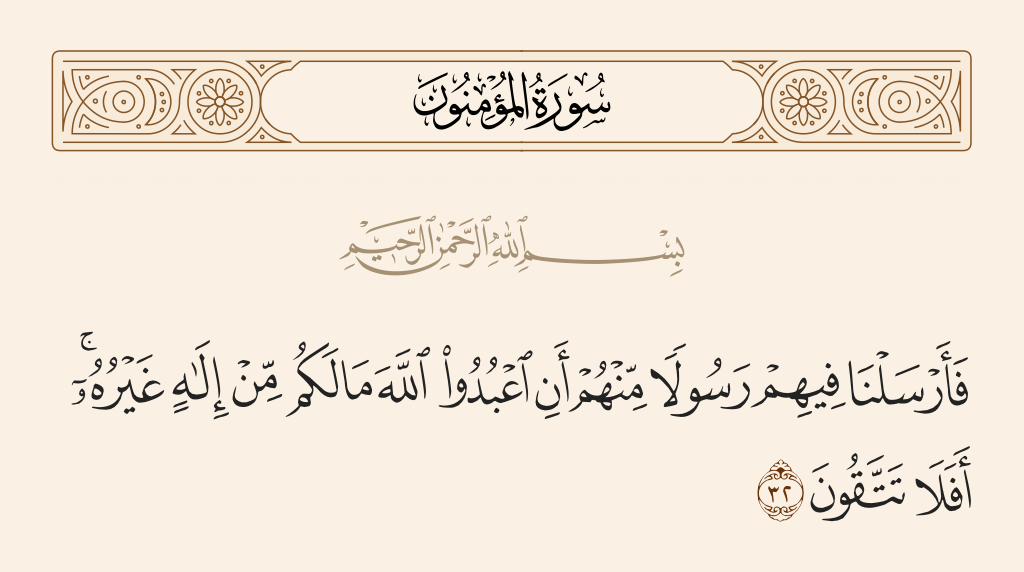 سُورَةُ المُؤْمِنُونَ
بِسْمِ ٱللَّهِ ٱلرَّحْمَٰنِ ٱلرَّحِيمِ
فَأَرْسَلْنَا فِيهِمْ رَسُولًا مِّنْهُمْ أَنِ ٱعْبُدُوا۟ ٱللَّهَ مَا لَكُم مِّنْ إِلَـٰهٍ غَيْرُهُۥٓ ۚ
أَفَلَا تَتَّقُونَ ٣٢